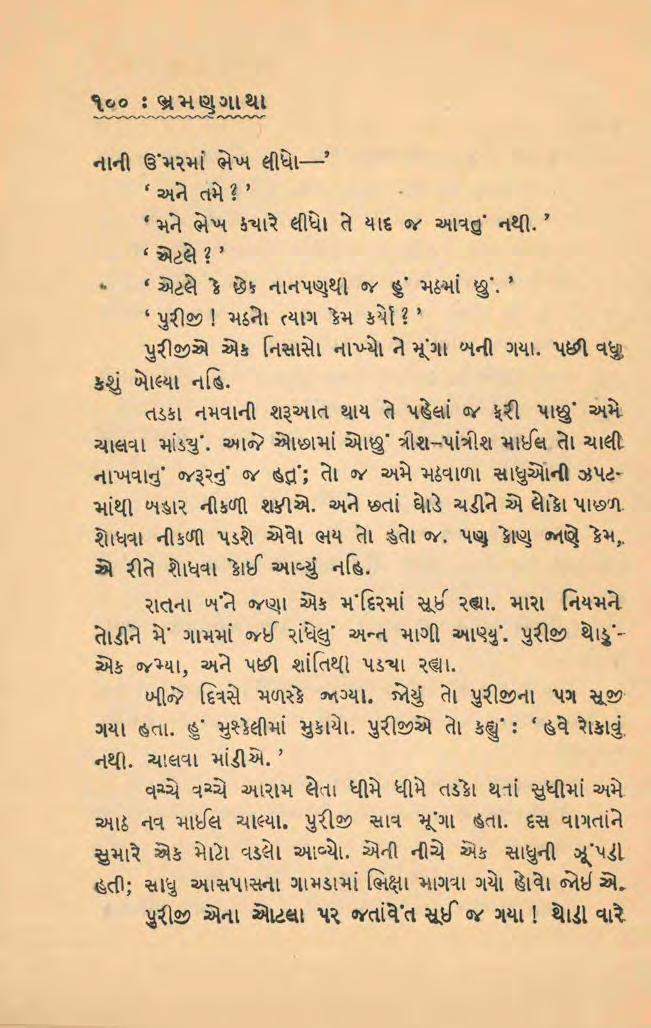 ૧૦૦ : ભ્રમણગાથા
નાની ઉંમરમાં ભેખ લીધો—’
‘ અને તમે ? ’
‘ મને ભેખ ક્યારે લીધો તે યાદ જ આવતું નથી. ’
‘ એટલે ? ’
‘ એટલે કે છેક નાનપણથી જ હું મઠમાં છું. ’
‘ પુરીજી ! મઠનો ત્યાગ કેમ કર્યો ? ’
પુરીજીએ એક નિસાસો નાખ્યો ને મૂંગા બની ગયા. પછી વધુ
કશું બોલ્યા નહિ.
તડકા નમવાની શરૂઆત થાય તે પહેલાં જ ફરી પાછું અમે
ચાલવા માંડ્યું. આજે ઓછામાં ઓછું ત્રીશ-પાંત્રીશ માઈલ તો ચાલી
નાખવાનું જરૂરનું જ હતું; તો જ અમે મઠવાળા સાધુઓની ઝપટ-
માંથી બહાર નીકળી શકીએ. અને છતાં ઘોડે ચડીને એ લોકો પાછળ
શોધવા નીકળી પડશે એવો ભય તો હતો જ. પણ કોણ જાણે કેમ,
એ રીતે શોધવા કોઈ આવ્યું નહિ.
રાતના બંને જણા એક મંદિરમાં સૂઈ રહ્યા. મારા નિયમને
તોડીને મેં ગામમાં જઈ રાંધેલું અન્ન માગી આણ્યું. પુરીજી થોડું-
એક જમ્યા, અને પછી શાંતિથી પડ્યા રહ્યા.
બીજે દિવસે મળસ્કે જાગ્યા. જોયું તો પુરીજીના પગ સૂજી
ગયા હતા. હું મુશ્કેલીમાં મુકાયો. પુરીજીએ તો કહ્યું : ‘ હવે રોકાવું
નથી. ચાલવા માંડીએ. ’
વચ્ચે વચ્ચે આરામ લેતા ધીમે ધીમે તડકો થતાં સુધીમાં અમે
આઠ નવ માઈલ ચાલ્યા. પુરીજી સાવ મૂંગા હતા. દસ વાગતાંને
સુમારે એક મોટો વડલો આવ્યો. એની નીચે એક સાધુની ઝૂંપડી
હતી; સાધુ આસપાસના ગામડામાં ભિક્ષા માગવા ગયો હોવો જોઈ એ.
પુરીજી એના ઓટલા પર જતાંવેંત સૂઈ જ ગયા ! થોડી વારે